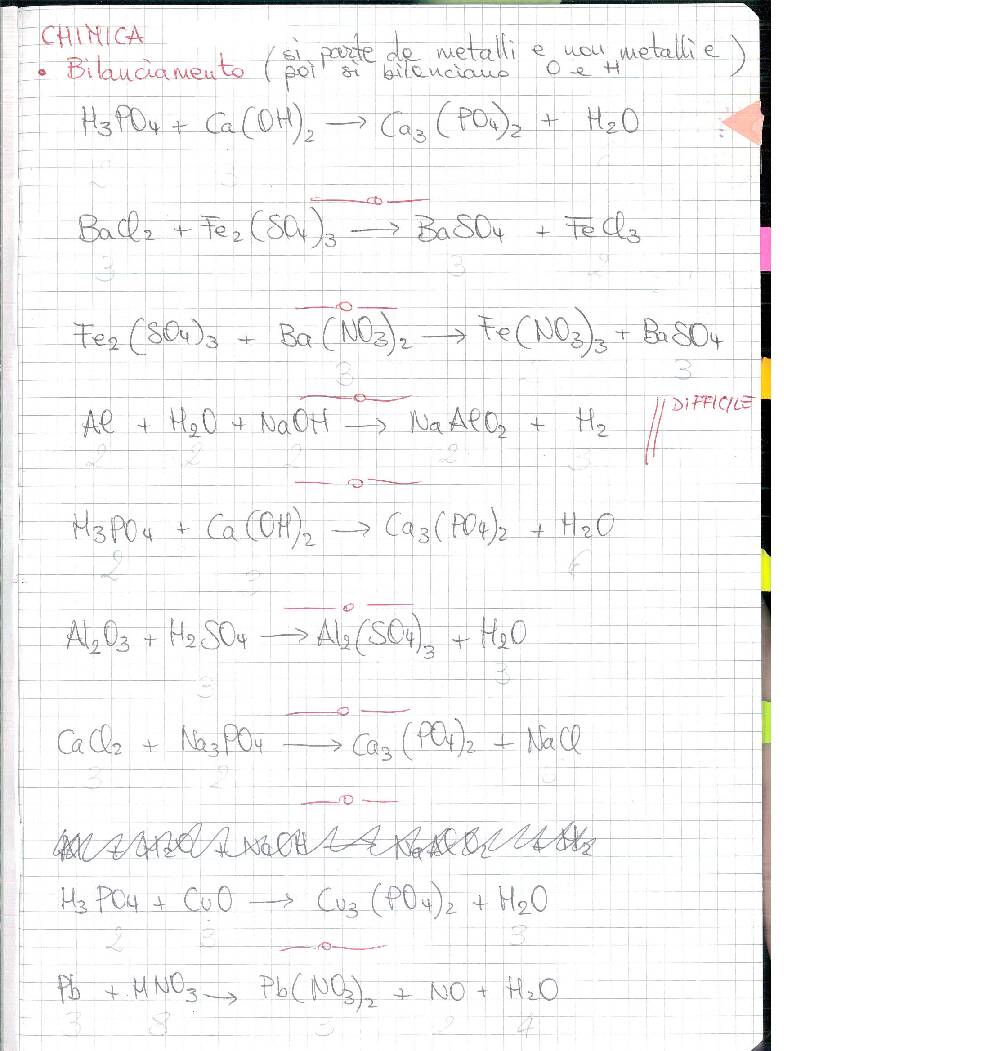 CHIMICA
• Bilanciamento (si parte da metalli e non metalli e poi si bilanciano O e H)
H₃PO₄ + Ca(OH)₂ → Ca₃(PO₄)₂ + H₂O
2 3 6
BaCl₂ + Fe₂(SO₄)₃ → BaSO₄ + FeCl₃
3 3 2
Fe₂(SO₄)₃ + Ba(NO₃)₂ → Fe(NO₃)₃ + BaSO₄
3 3
Al + H₂O + NaOH → NaAlO₂ + H₂ DIFFICILE
2 2 2 2 3
H₃PO₄ + Ca(OH)₂ → Ca₃(PO₄)₂ + H₂O
2 6
Al₂O₃ + H₂SO₄ → Al₂(SO₄)₃ + H₂O
3 3
CaCl₂ + Na₃PO₄ → Ca₃(PO₄)₂ + NaCl
3 2
H₃PO₄ + CuO → Cu₃(PO₄)₂ + H₂O
2 3 3
Pb + HNO₃ → Pb(NO₃)₂ + NO + H₂O
3 8 3 2 4